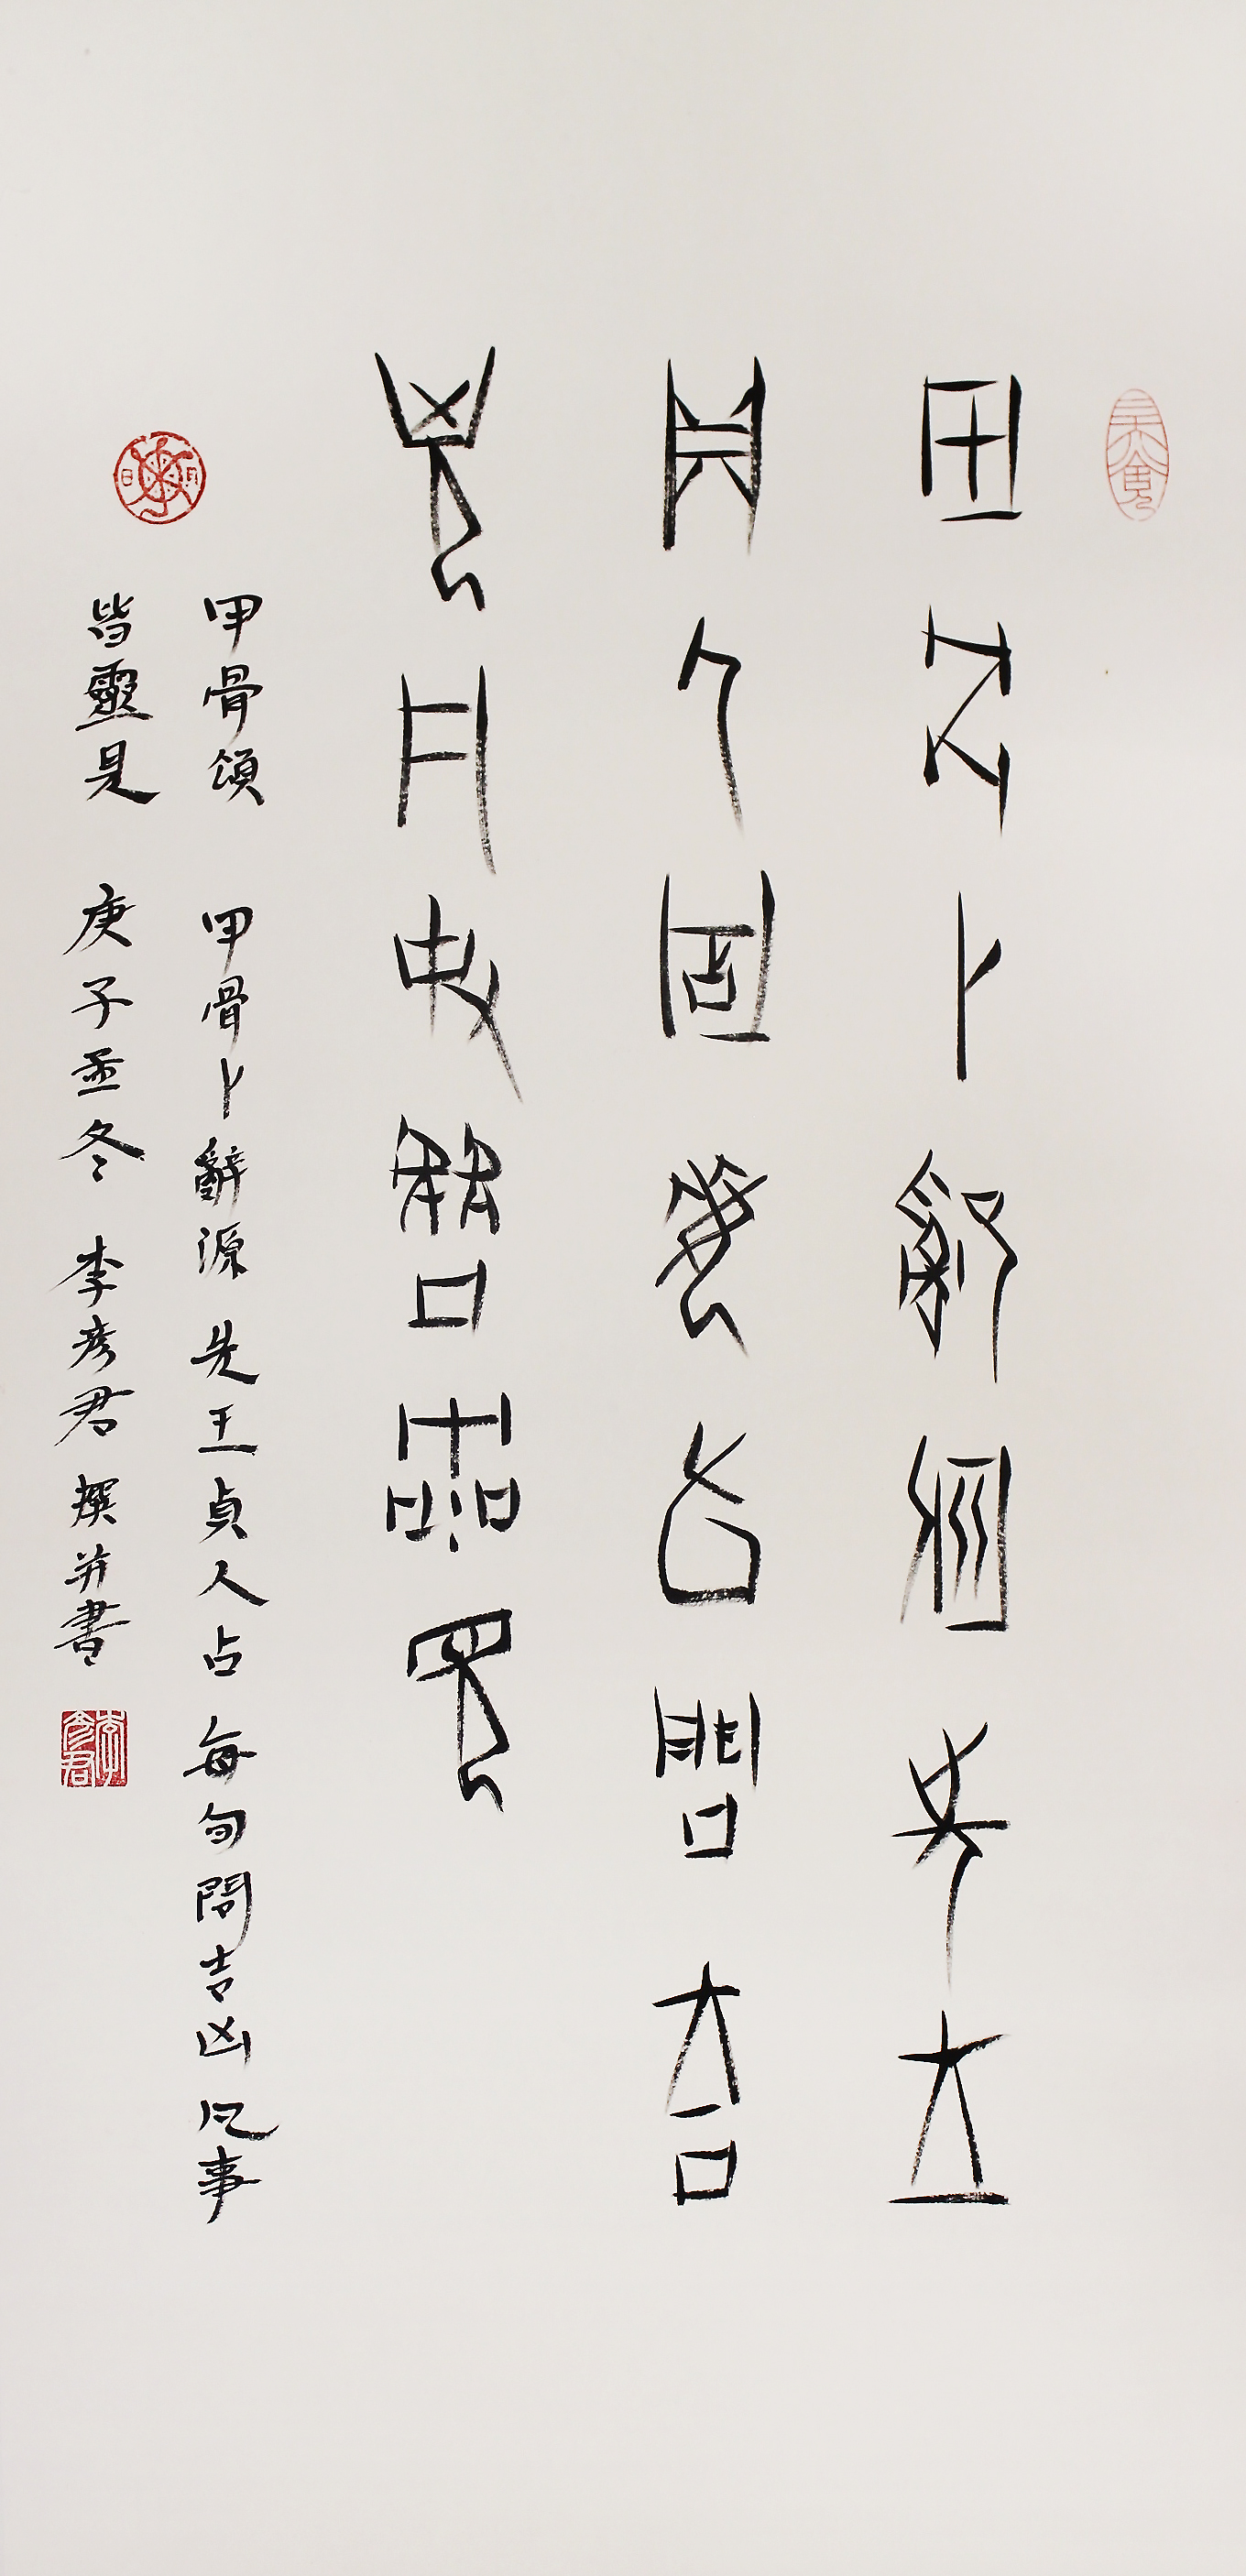 甲骨卜辭源先王
貞人占每占問吉
凶凡事皆靈是
甲骨頌 甲骨卜辭源先王貞人占每句問吉凶凡事
皆靈是 庚子孟冬 李彥君撰并書
李彥君